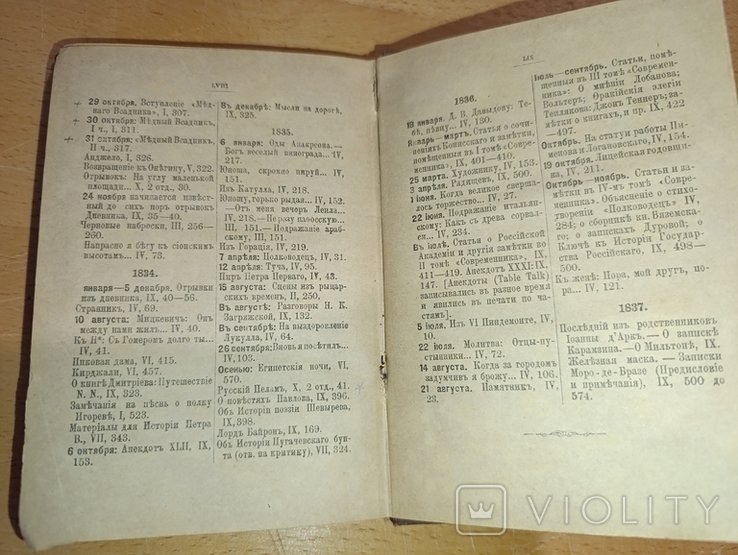 LVIII
29 октября. Вступленіе «Мѣд-
наго Всадника», I, 307.
30 октября: Мѣдный Всадникъ,
I ч., I, 311.
31 октября: «Мѣдный Всадникъ,
II ч., 317.
Анджело, I, 326.
Возвращеніе къ Онѣгину, V, 322.
Отрывокъ: На углу маленькой
площади... X, 2 отд. 30.
24 ноября начинается извѣст-
ный до сихъ поръ отрывокъ
Дневника, IX, 35—40.
Черновые наброски, III, 256—
260.
Напрасно я бѣгу къ сіонскимъ
высотамъ.., IV, 73.
1834.
января—5 декабря. Отрывки
изъ дневника, IX, 40—56.
Странникъ, IV, 69.
10 августа: Мицкевичъ: Онъ
между нами жилъ... IV, 40.
Къ Н*: Съ Гомеромъ долго ты...
IV, 41.
Пиковая дама, VI, 415.
Кирджали, VI, 457.
О книгѣ Дмитріева: Путешествіе
N. N., IX, 323.
Замѣчанія на пѣснь о полку
Игоревѣ, I, 523.
Матеріалы для Исторіи Петра
В., VII, 343.
6 октября: Анекдотъ XLII, IX,
153.
Въ декабрѣ: Мысли на дорогѣ,
IX, 325.
1835.
6 января: Оды Анакреона.—
Богъ веселый винограда... IV,
217.
Юноша, скромно пируй... IV,
151.
Изъ Катулла, IV, 218.
Юношу, горько рыдая... IV, 152.
—Отъ меня вечоръ Леила... IV,
218.—Не розу пафосскую...
IV, 151.—Подражаніе араб-
скому, III, 291.
Изъ Горація, IV, 219.
7 апрѣля: Полководецъ, IV, 31.
12 апрѣля: Туча, IV, 95.
Пиръ Петра Перваго, IV, 43.
15 августа: Сцены изъ рыцар-
скихъ временъ, II, 250.
Въ августѣ: Разговоры Н. К.
Загряжской, IX, 132.
Въ сентябрѣ: На выздоровленіе
Лукулла, IV, 64.
26 сентября: Вновь я посѣтилъ...
IV, 103.
Осенью: Египетскія ночи, VI,
570.
Русскій Пеламъ, X, 2 отд., 41.
О повѣстяхъ Павлова, IX, 396.
Объ Исторіи поэзіи Шевырева,
IX, 398.
Лордъ Байронъ, IX, 169.
Объ Исторіи Пугачевскаго бун-
та (отв. на критику), VII, 324.
LIX
1836.
18 января. Д. В. Давыдову: Те-
бѣ, пѣвцу.., IV, 130.
Январь—мартъ. Статья о сочи-
неніяхъ Конисскаго и замѣтки,
помѣщенныя въ I томѣ «Совре-
менника», IX, 401—410.
25 марта. Художнику, IV, 153.
3 апрѣля. Радищевъ, IX, 500.
1 іюня. Когда великое свершa-
лось торжество... IV, 27.
22 іюня. Подражаніе итальян-
скому: Какъ съ древа сорвал-
ся.., IV, 234.
Въ іюлѣ. Статья о Россійской
Академіи и другія замѣтки во
II томѣ «Современника», IX,
411—419. Анекдотъ XXXI: IX,
147. [Анекдоты (Table Talk)
записывались въ разное время
и явились въ печати по ча-
стямъ].
5 іюля. Изъ VI Пиндемонте, IV,
10.
22 іюля. Молитва: Отцы-пу-
стынники... IV, 72.
14 августа. Когда за городомъ
задумчивъ я брожу... IV, 106.
21 августа. Памятникъ, IV,
23.
Іюль—сентябрь. Статьи, помѣ-
щенныя въ III томѣ «Современ-
ника»: О мнѣніи Лобанова;
Вольтеръ; Ѳракійскія элегіи
Теплякова; Джонъ Теннеръ; за-
мѣтки о книгахъ, и пр. IX, 422
—497.
Октябрь. На статуи работы Пи-
менова и Логановскаго, IV, 154.
19 октября. Лицейская годовщи-
на, IV, 121.
Октябрь—ноябрь. Статьи и за-
мѣтки въ IV-мъ томѣ «Совре-
менника»: Объясненіе о стихо-
твореніи «Полководецъ» IV,
284; о сборникѣ кн. Вяземска-
го; о запискахъ Дуровой; о
Ключѣ къ Исторіи Государ-
ства Россійскаго, IX, 498—
500.
Къ женѣ: Пора, мой другъ, по-
ра... IV, 121.
1837.
Послѣдній изъ родственниковъ
Іоанны д'Аркъ. — О запискѣ
Карамзина. — О Мильтонѣ, IX.
Желѣзная маска. — Записки
Моро-де-Бразе (Предисловіе
и примѣчанія), IX, 500 до
574.
VIOLITY